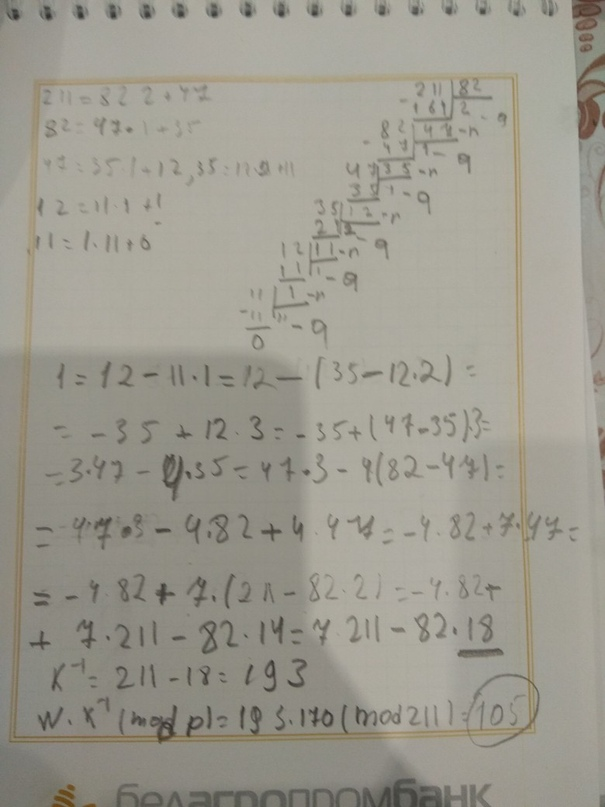 211 = 82 2 + 47
82 = 47 · 1 + 35
47 = 35 · 1 + 12, 35 = 12 · 2 + 11
12 = 11 · 1 + 1
11 = 1 · 11 + 0
211 82
- 164 2 - q
82 47 - n
- 47 1 - q
47 35 - n
35 1 - q
35 12 - n
2 - q
12 11 - n
11 1 - q
11 1 - n
- 11 11 - q
0
1 = 12 - 11 · 1 = 12 - (35 - 12 · 2) =
= - 35 + 12 · 3 = - 35 + (47 - 35) 3 =
= 3 · 47 - 4 · 35 = 47 · 3 - 4 (82 - 47) =
= 47 · 3 - 4 · 82 + 4 · 47 = - 4 · 82 + 7 · 47 =
= - 4 · 82 + 7 · (211 - 82 · 2) = - 4 · 82 +
+ 7 · 211 - 82 · 14 = 7 · 211 - 82 · 18
K⁻¹ = 211 - 18 = 193
W · K⁻¹ (mod p) = 193 · 170 (mod 211) = 105
белагропромбанк